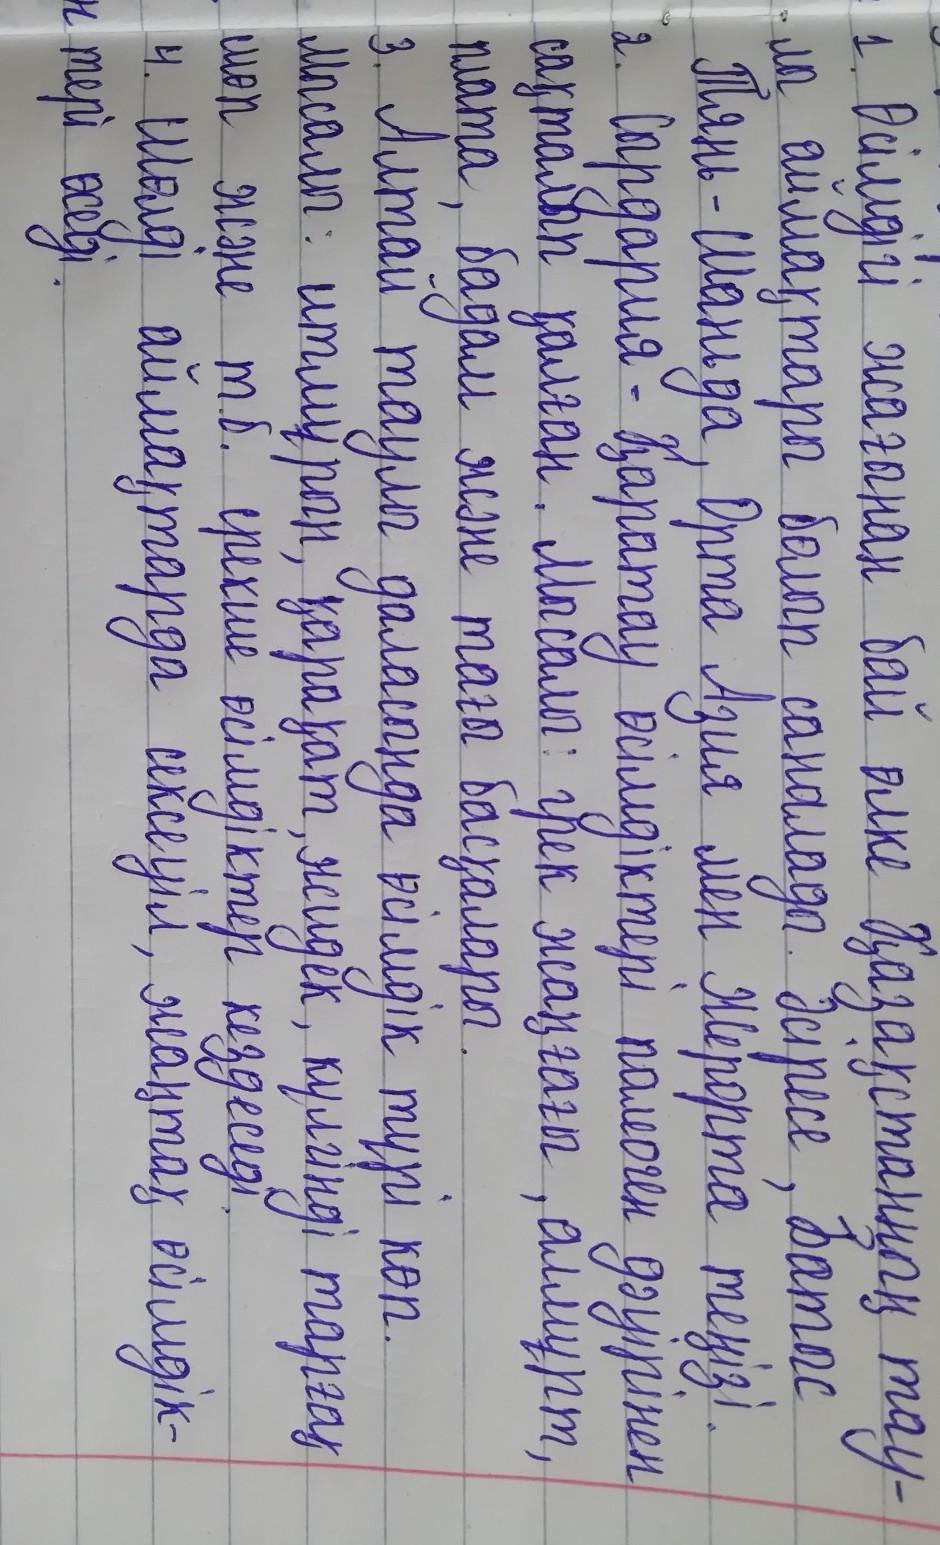 1. Өсілдігі жағынан бай өлке Қазақстанның тау-
лы аймақтары болып саналады. Әсіресе, Батыс
Тянь-Шаньда, Орта Азия мен Жерорта теңізі.
2. Сырдария-Қаратау өсімдіктері палеоген дәуірінен
сақталып қалған. Мысалы: грек жаңғағы, алмұрт,
шата, бадам және тағы басқалары.
3. Алтай таулы даласында өсімдік түрі көп.
Мысалы: итмұрын, қарақат, жидек, күлгінді тарғақ
шөп және т.б. ерекше өсімдіктер кездеседі.
4. Шөлді аймақтарда сексеуіл, жантақ өсімдік-
тері өседі.